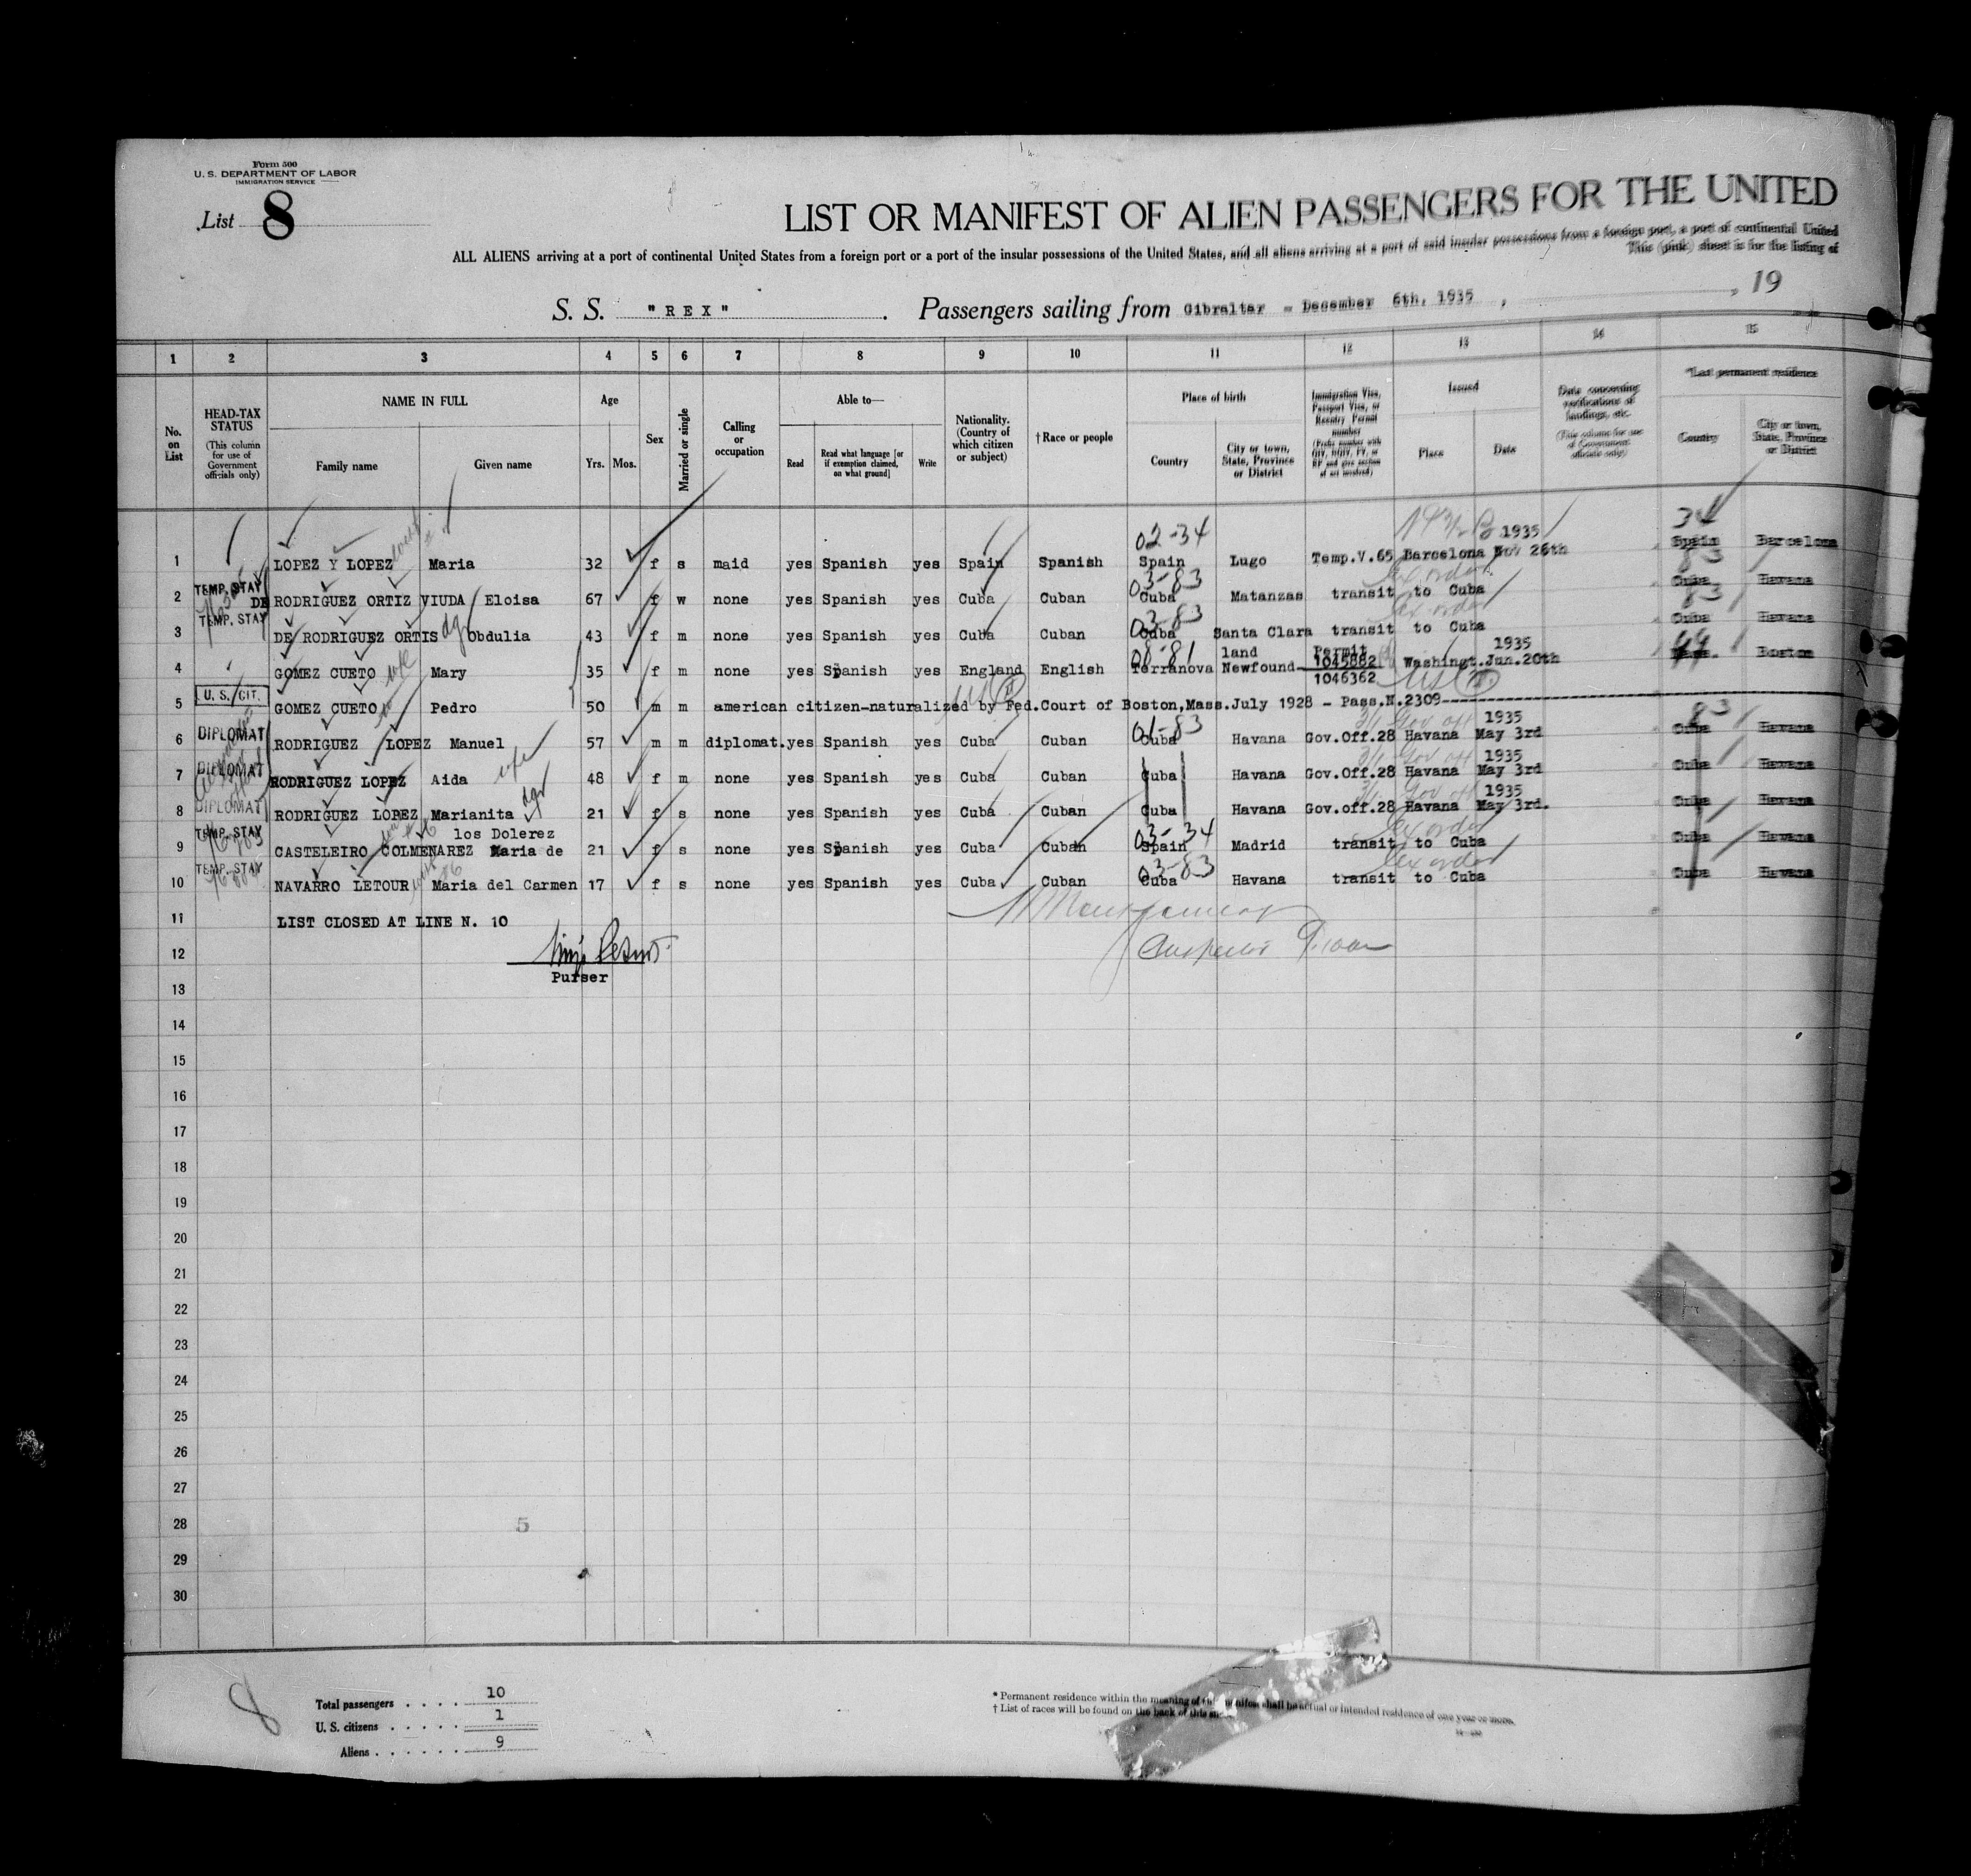 Form 500
U. S. DEPARTMENT OF LABOR
IMMIGRATION SERVICE
List 8
LIST OR MANIFEST OF ALIEN PASSENGERS FOR THE UNITED
ALL ALIENS arriving at a port of continental United States from a foreign port or a port of the insular possessions of the United States, and all aliens arriving at a port of said insular possessions from a foreign port, a port of continental United
This (pink) sheet is for the listing of
S. S. "REX". Passengers sailing from Gibraltar - December 6th, 1935 , , 19
1 2 3 4 5 6 7 8 9 10 11 12 13 14 15
No. on List
HEAD-TAX STATUS (This column for use of Government officials only)
NAME IN FULL
Family name Given name
Age
Yrs. Mos.
Sex
Married or single
Calling or occupation
Able to—
Read Read what language [or if exemption claimed, on what ground] Write
Nationality. (Country of which citizen or subject)
† Race or people
Place of birth
Country City or town, State, Province or District
Immigration Visa, Passport Visa, or Reentry Permit number
Issued
Place Date
Data concerning verifications of landings, etc. (This column for use of Government officials only)
*Last permanent residence
Country City or town, State, Province or District
02-34 1935 34
1 LOPEZ Y LOPEZ Maria 32 f s maid yes Spanish yes Spain Spanish Spain Lugo Temp.V.65 Barcelona Nov 26th Spain Barcelona
TEMP. STAY 03-83 ex order 83
2 DE RODRIGUEZ ORTIZ VIUDA Eloisa 67 f w none yes Spanish yes Cuba Cuban Cuba Matanzas transit to Cuba Cuba Havana
TEMP. STAY 03-83 ex order 83
3 DE RODRIGUEZ ORTIS dgr Obdulia 43 f m none yes Spanish yes Cuba Cuban Cuba Santa Clara transit to Cuba Cuba Havana
08-81 land Permit 1935
4 GOMEZ CUETO wfe Mary 35 f m none yes Spanish yes England English Terranova Newfound- 1045882 Washingt.Jun.20th Mass. Boston
1046362 US
U. S. CIT.
5 GOMEZ CUETO Pedro 50 m m american citizen-naturalized by Fed.Court of Boston,Mass.July 1928 - Pass.N.2309
DIPLOMAT 01-83 3/1 Gov off 1935 83
6 RODRIGUEZ LOPEZ Manuel 57 m m diplomat. yes Spanish yes Cuba Cuban Cuba Havana Gov.Off.28 Havana May 3rd Cuba Havana
DIPLOMAT wfe 3/1 Gov off 1935
7 RODRIGUEZ LOPEZ Aida 48 f m none yes Spanish yes Cuba Cuban Cuba Havana Gov.Off.28 Havana May 3rd Cuba Havana
DIPLOMAT dgr 3/1 Gov off 1935
8 RODRIGUEZ LOPEZ Marianita 21 f s none yes Spanish yes Cuba Cuban Cuba Havana Gov.off.28 Havana May 3rd. Cuba Havana
TEMP. STAY los Dolerez 03-34 ex order
9 CASTELEIRO COLMENAREZ Maria de 21 f s none yes Spanish yes Cuba Cuban Spain Madrid transit to Cuba Cuba Havana
TEMP. STAY 03-83 ex order
10 NAVARRO LETOUR Maria del Carmen 17 f s none yes Spanish yes Cuba Cuban Cuba Havana transit to Cuba Cuba Havana
11 LIST CLOSED AT LINE N. 10
12
Purser
13
14
15
16
17
18
19
20
21
22
23
24
25
26
27
28 5
29
30
8
Total passengers . . . . 10
U. S. citizens . . . . . 1
Aliens . . . . . . 9
* Permanent residence within the meaning of this manifest shall be actual or intended residence of one year or more.
† List of races will be found on the back of this sheet.